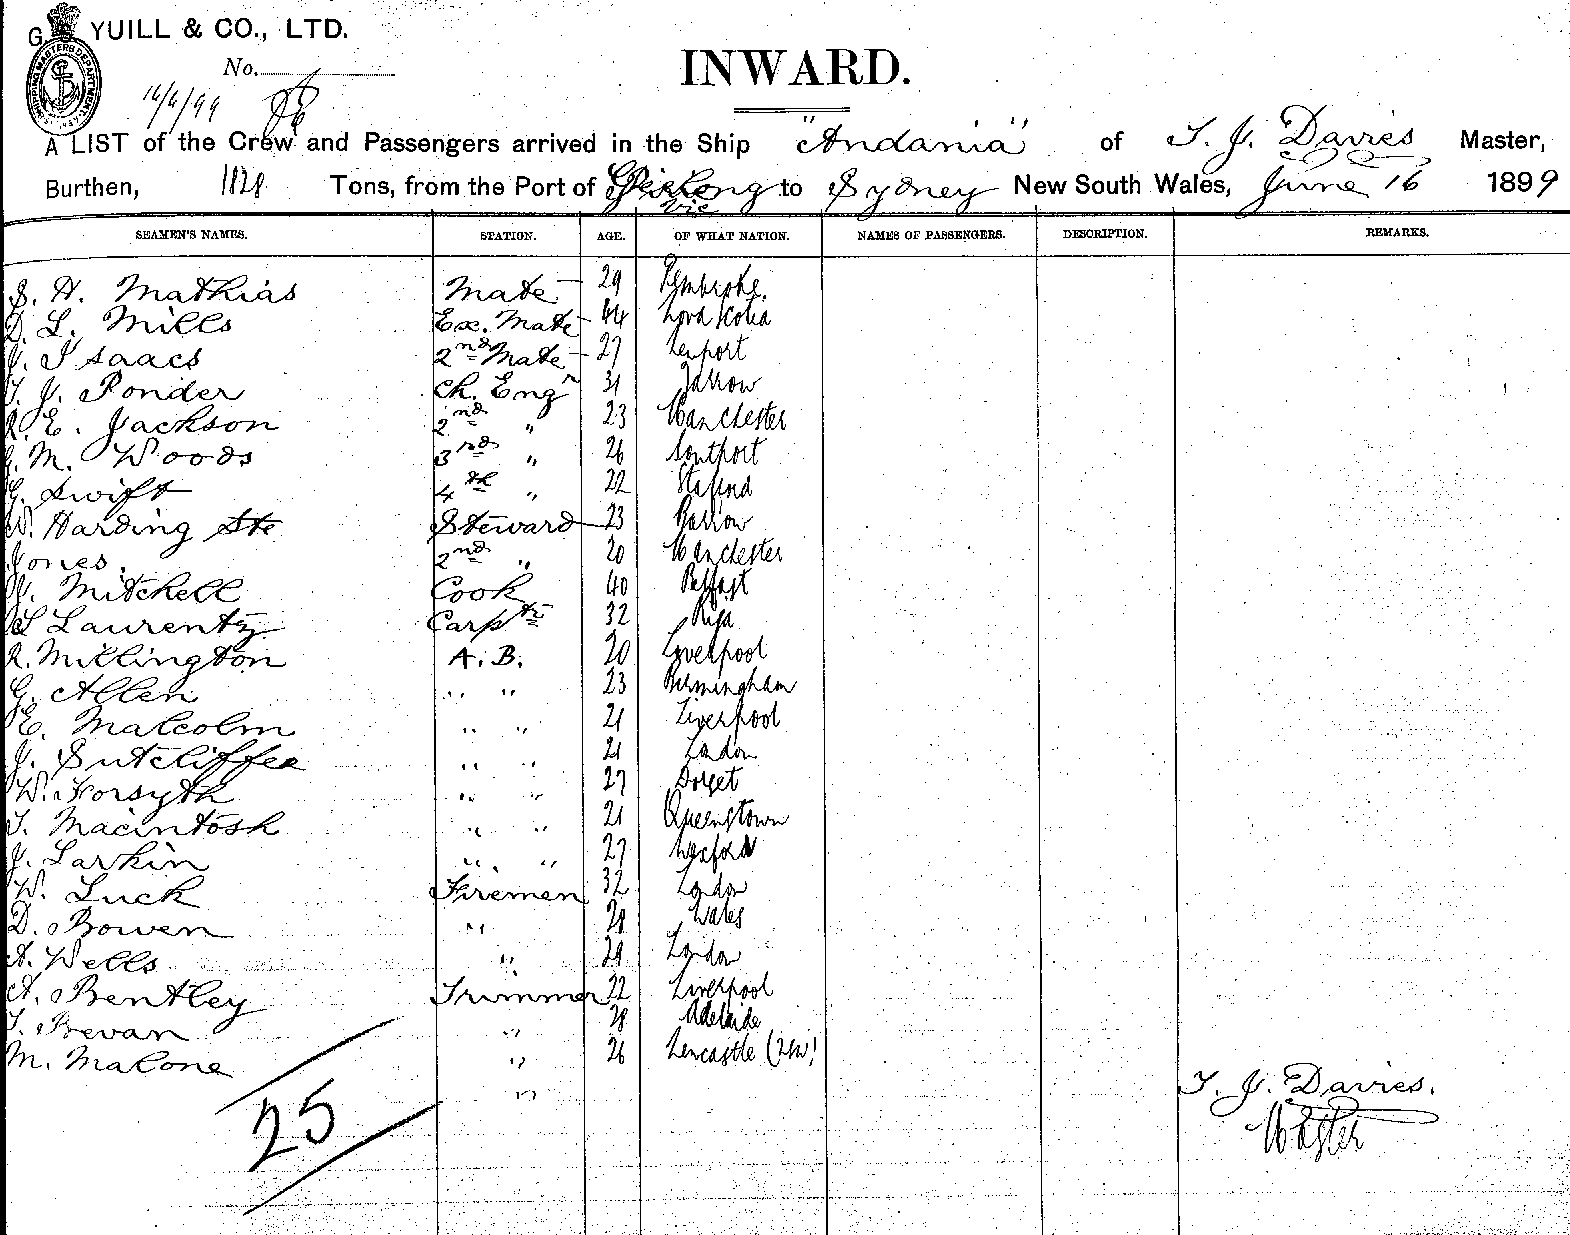 G. YUILL & CO., LTD.
No.
16/6/99
INWARD.
A LIST of the Crew and Passengers arrived in the Ship "Andania" of T. J. Davies Master,
Burthen, 1828 Tons, from the Port of Geelong Vic to Sydney New South Wales, June 16 1899
SEAMEN'S NAMES. STATION. AGE. OF WHAT NATION. NAMES OF PASSENGERS. DESCRIPTION. REMARKS.
J. H. Mathias Mate 29 Pembroke.
D. L. Mills Ex. Mate 44 Nova Scotia
J. Isaacs 2nd Mate 27 Newport
T. J. Ponder Ch. Engr 31 Jarrow
E. Jackson 2nd " 23 Manchester
M. Woods 3rd " 26 Southport
G. Swift 4th " 22 Stafford
W. Harding Ste Steward 23 Barrow
Jones. 2nd " 20 Manchester
Mitchell Cook 40 Belfast
Laurentz Carptr 32 Riga
R. Millington A. B. 20 Liverpool
G. Allen " " 23 Birmingham
E. Malcolm " " 21 Liverpool
J. Sutcliffee " " 21 London
W. Forsyth " " 27 Dorset
T. Macintosh " " 21 Queenstown
J. Larkin " " 27 Wexford
W. Luck Firemen 32 London
D. Bowen " 28 Wales
A. Wells " 28 London
A. Bentley Trimmer 22 Liverpool
T. Bevan " 28 Adelaide
M. Malone " 26 Newcastle (NSW)
"
T. J. Davies.
Master
25